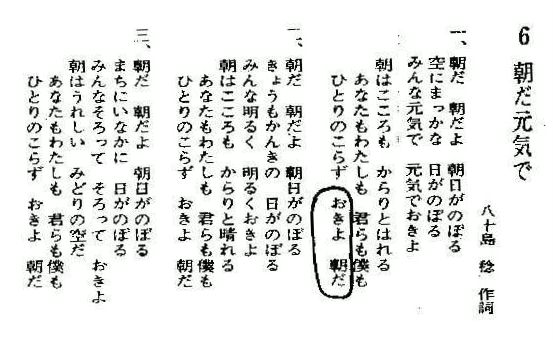 6 朝だ元気で
八十島 稔 作詞
一、朝だ 朝だよ 朝日がのぼる
空にまっかな 日がのぼる
みんな元気で 元気でおきよ
朝はこころも からりとはれる
あなたもわたしも 君らも僕も
ひとりのこらず おきよ 朝だ
二、朝だ 朝だよ 朝日がのぼる
きょうもかんきの 日がのぼる
みんな明るく 明るくおきよ
朝はこころも からりと晴れる
あなたもわたしも 君らも僕も
ひとりのこらず おきよ 朝だ
三、朝だ 朝だよ 朝日がのぼる
まちにいなかに 日がのぼる
みんなそろって そろって おきよ
朝はうれしい みどりの空だ
あなたもわたしも 君らも僕も
ひとりのこらず おきよ 朝だ